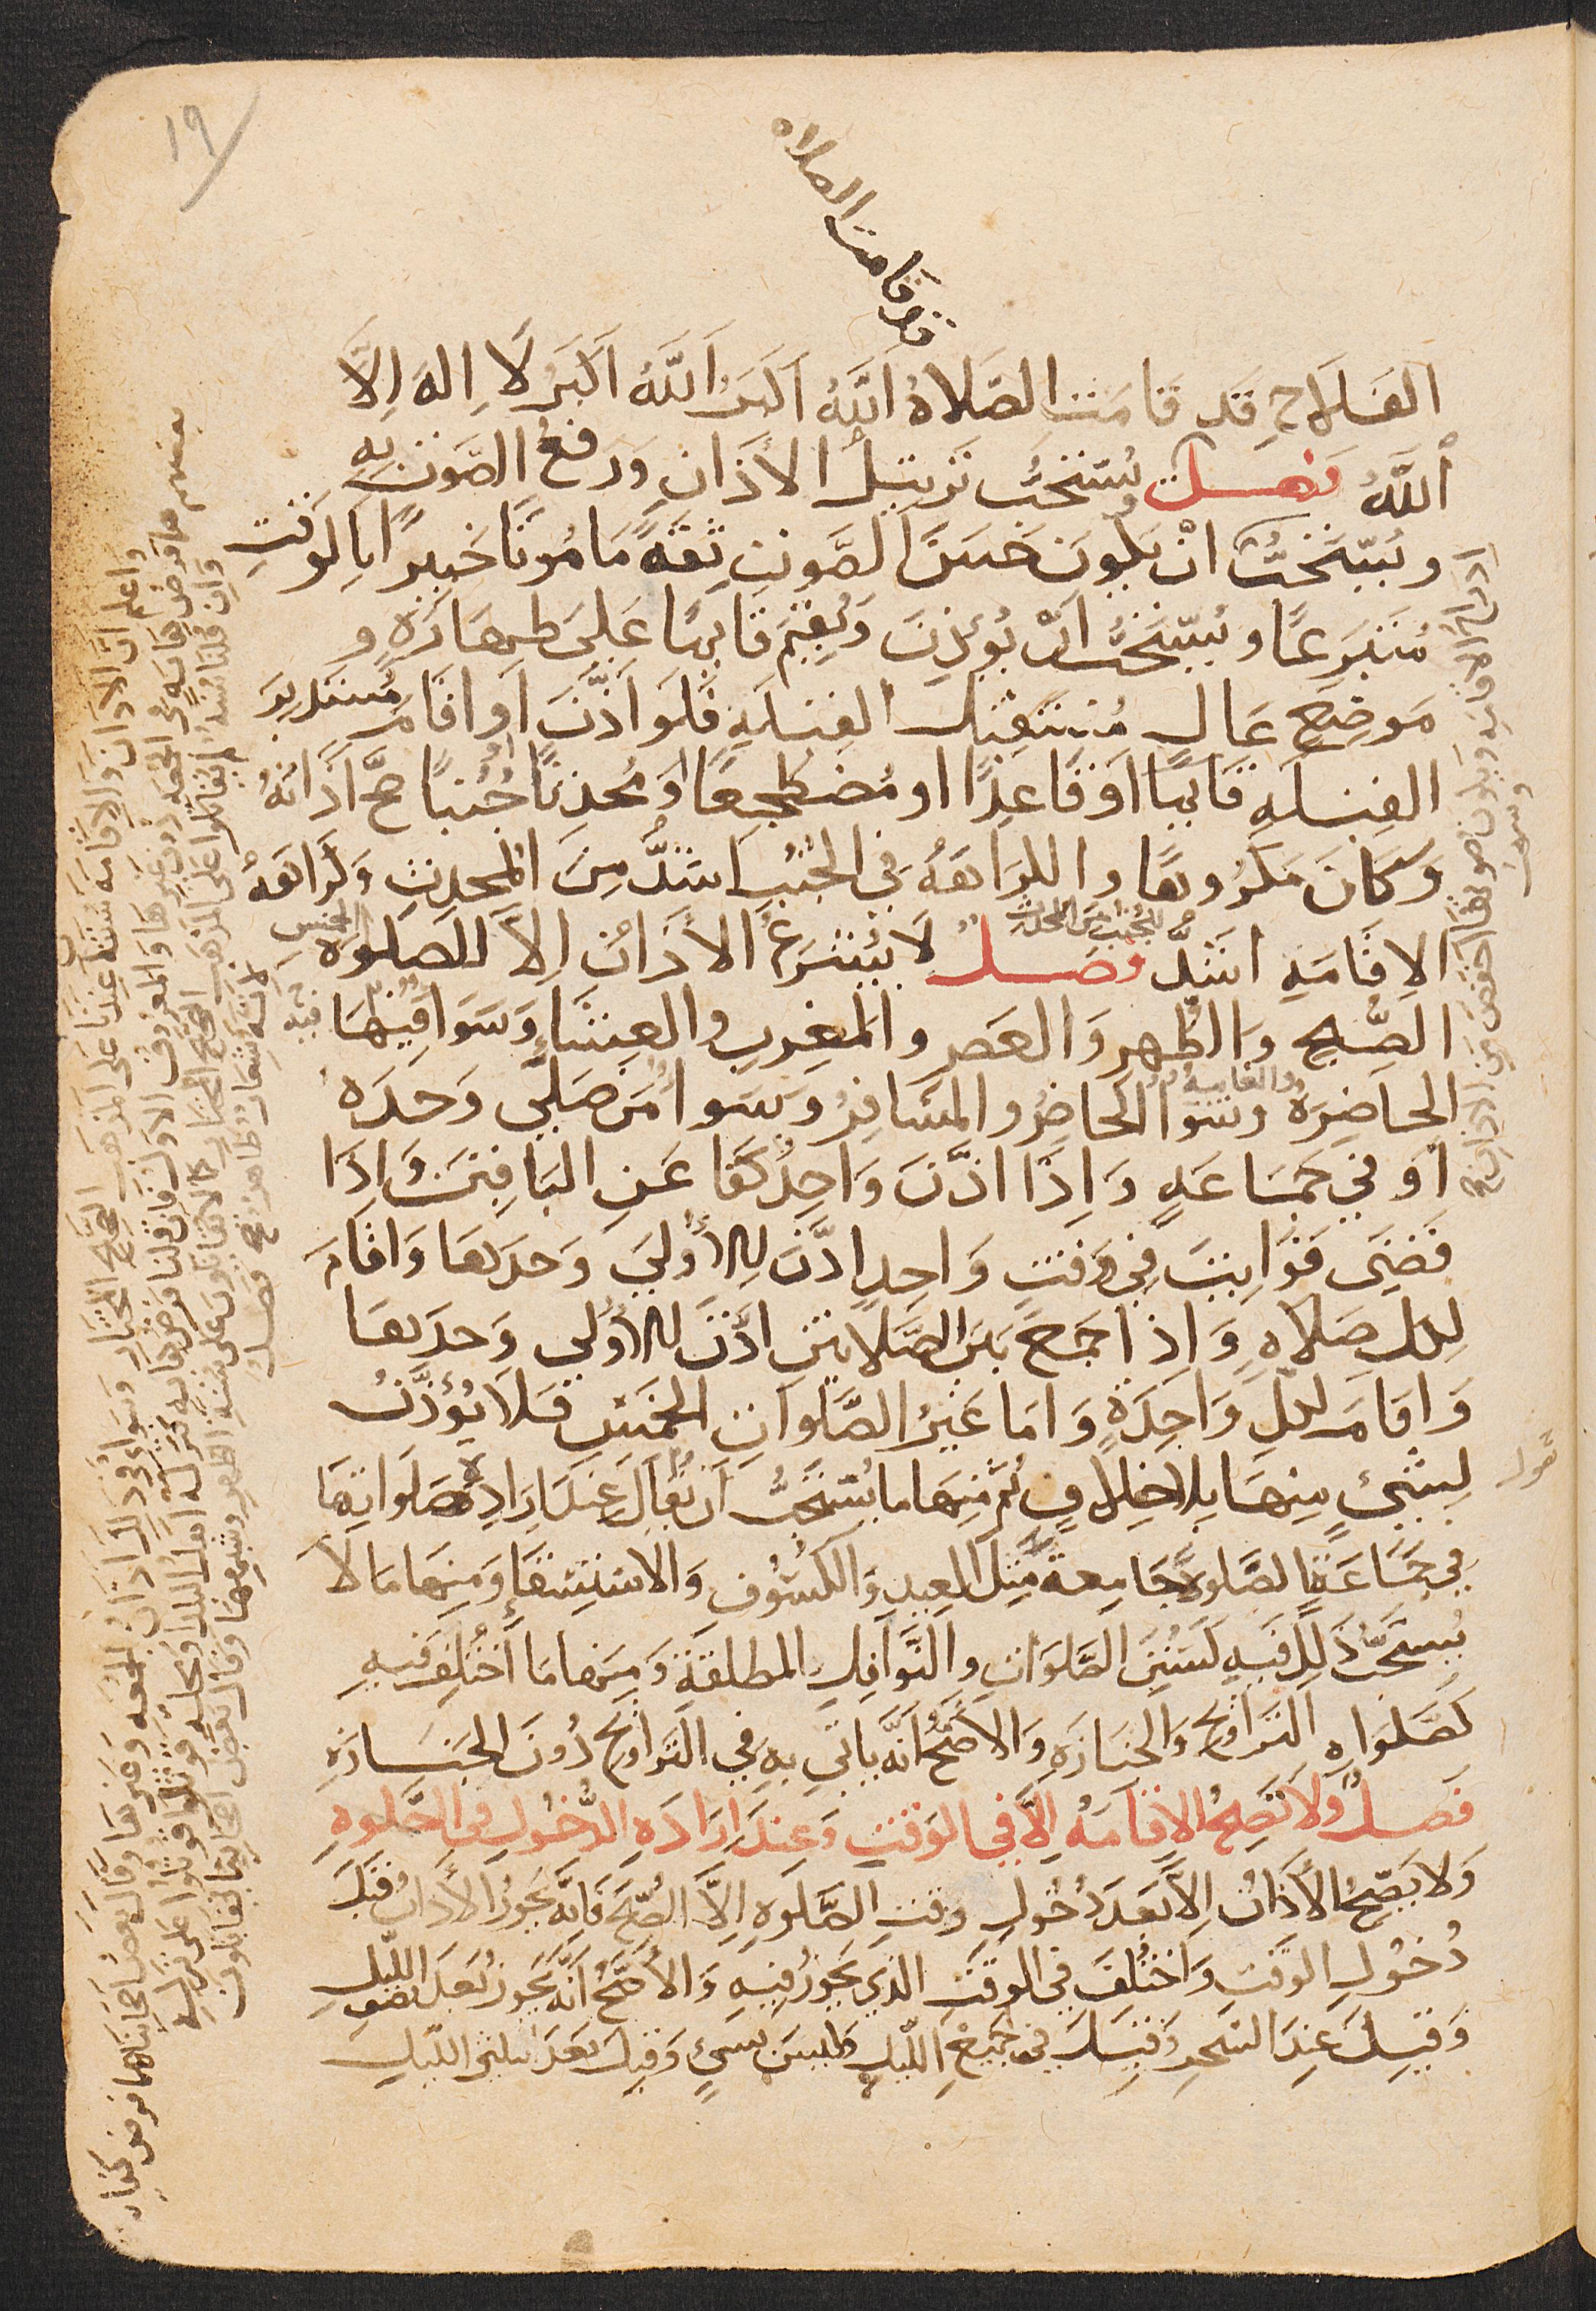 ١٩
قد قامت الصلاة
الفَلَاحِ قَد قَامَت الصَّلَاةُ اَللَّهُ اَكبَرُ اَللَّهُ اَكبَرُ لَا اِلهَ اِلَّا
اَللَّهُ فصل يُستَحَبُّ تَرتِيلُ الأَذَانِ وَرَفعُ الصَّوتِ بِهِ
ويُستَحَبُّ انْ يَكُونَ حَسَنَ الصَّوتِ ثِقَةً مَامُونًا خَبِيرًا بِالوَقتِ
مُتَبَرِعًا ويُستَحَبُّ اَنْ يُؤَذِنَ وَيُقِيمَ قَايمًا عَلَى طَهَارَةٍ و
مَوضِعٍ عَالٍ مُستَقبِلَ القِبلَةِ فَلَو اَذَّنَ اَو اقَامَ مُستَدبِرَ
القِبلَةِ قَايمًا اَو قَاعِدًا او مُضطَجِعًا اَو مُحدِثًا اَو جُنُبًا صَحَّ اَذَانُهُ
وَكَانَ مَكرُوهًا والكَرَاهَةُ فى الجُنُبِ اَشَدُّ مِنَ المُحدِثِ وَكَرَاهَةُ
الاِقَامَةِ اشَدُّ فصل لَا يُشرَعُ الأَذَانُ اِلاَّ للصَلَوةِ الخمسِ
للجنب من المحدث
الصُّبحِ وَالظُّهرِ وَالعَصرِ والمَغرِبِ والعِشَاءِ وَسَوَا فِيهَا
الحَاضِرَةُ والفايتة وسَوَا الحَاضِرُ والمسَافِرُ وَسَوا مَن صَلَّى وَحدَهُ
اَو فِي جمَاعَةٍ وَاِذَا اذَّنَ وَاحِدٌ كَفَا عَنِ البَاقِينَ وَاِذَا
قَضَى فَوَايتَ فِي وَقتٍ وَاحِدٍ اذَّنَ لِلأُولَى وَحدَهَا وَاقَامَ
لِكل صَلَاةٍ وَاِذَا جَمَعَ بَينَ الصَّلَاتَينِ اذَّنَ لِلأُولَى وَحدَهَا
وَاقَامَ لكلِّ وَاحِدَةٍ وَامَا غَيرُ الصَّلَوَاتِ الخَمسِ فَلَا يُؤَذَّنُ
لِشَئٍ مِنهَا بِلَا خِلَافٍ ثُم مِنهَا مَا يُستَحَبُّ اَن يُقَالَ عِندَ اِرَادَةِ صَلَوَاتِهَا
فِي جَمَاعَةٍ الصَّلوةَ جَامِعَةً مِثلَ العِيدِ وَالكُسُوفِ وَالاستِسقَاءِ وَمِنهَا مَا لَا
يُستَحَبُّ ذَلِكَ فِيهِ كَسُنَنِ الصَّلَوَاتِ والنَّوَافِلِ المطلقَةِ وَمِنهَا مَا اُختُلِفَ فِيهِ
كَصَلَواةِ التَراوِيحِ وَالجنَازَةِ وَالاَصَحُّ انَّه يَاتِى بِهِ فِي التَرَاوِيحِ دُونَ الجَنَازَةِ
فَصلٌ وَلَا تَصِحُ الاِقَامَةُ اِلاَّ فِي الوَقتِ وَعِندَ اِرَادَةِ الدُّخُولِ فِي الصَّلَوةِ
وَلَا يَصِحُ الأَذَانُ اِلاَّ بَعدَ دُخُولِ وَقتِ الصَّلَوةِ اِلاَّ الصُّبحَ فَاِنَّه يَجُوزُ الأَذَانُ قَبلَ
دُخُولِ الوَقتِ وَاختُلِفَ فِي الوَقتِ الذي يَجُوزُ فِيهِ وَالأَصَحُّ اَنَّه يَجُوزُ بَعدَ نِصفِ اللَّيلِ
وَقِيلَ عِندَ السَحرِ وَقِيلَ فِي جَمِيعِ اللَّيلِ وَلَيسَ بِشَئٍ وَقِيلَ بَعدَ ثُلثَىِ اللَّيلِ
واعلم انَّ الاذان والاقامة سنة عندنا على المذهب الصحيح المختار وسواء في ذلك اذان الجمعة وغيرها وقال بعض اصحابنا هما فرض كفاية